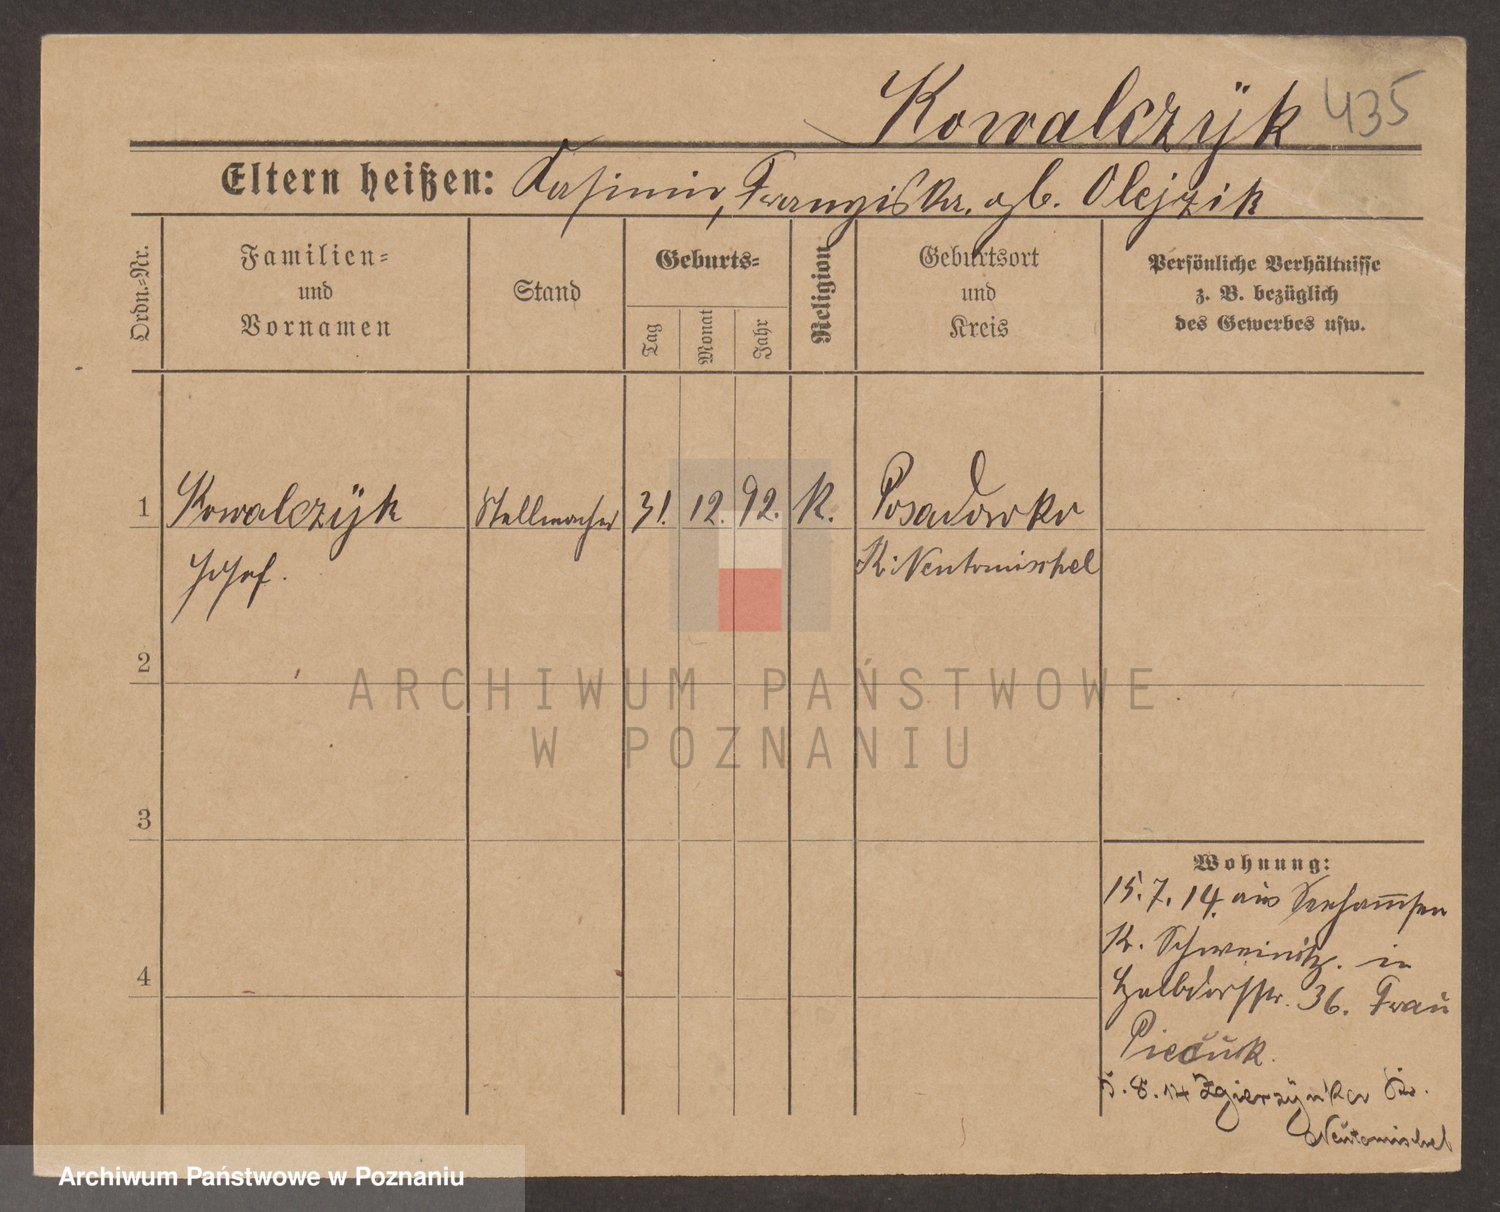 Kowalczÿk 435
Eltern heißen: Kasimir, Franziska, gb. Olejzik
Ordn.-Nr.
Familien- und Vornamen
Stand
Geburts-
Tag
Monat
Jahr
Religion
Geburtsort und Kreis
Persönliche Verhältnisse
z. B. bezüglich
des Gewerbes usw.
1 Kowalczÿk Stellmacher 31. 12. 92. K. Posadowko
Josef. K. Neutomischel
2
3
4
Wohnung:
15.7.14. aus
K. Schweinitz. in
Halbdorfstr. 36. Frau
5.8.14 Zgierzÿnka Kr.
Neutomischel
ARCHIWUM PAŃSTWOWE
W POZNANIU
Archiwum Państwowe w Poznaniu